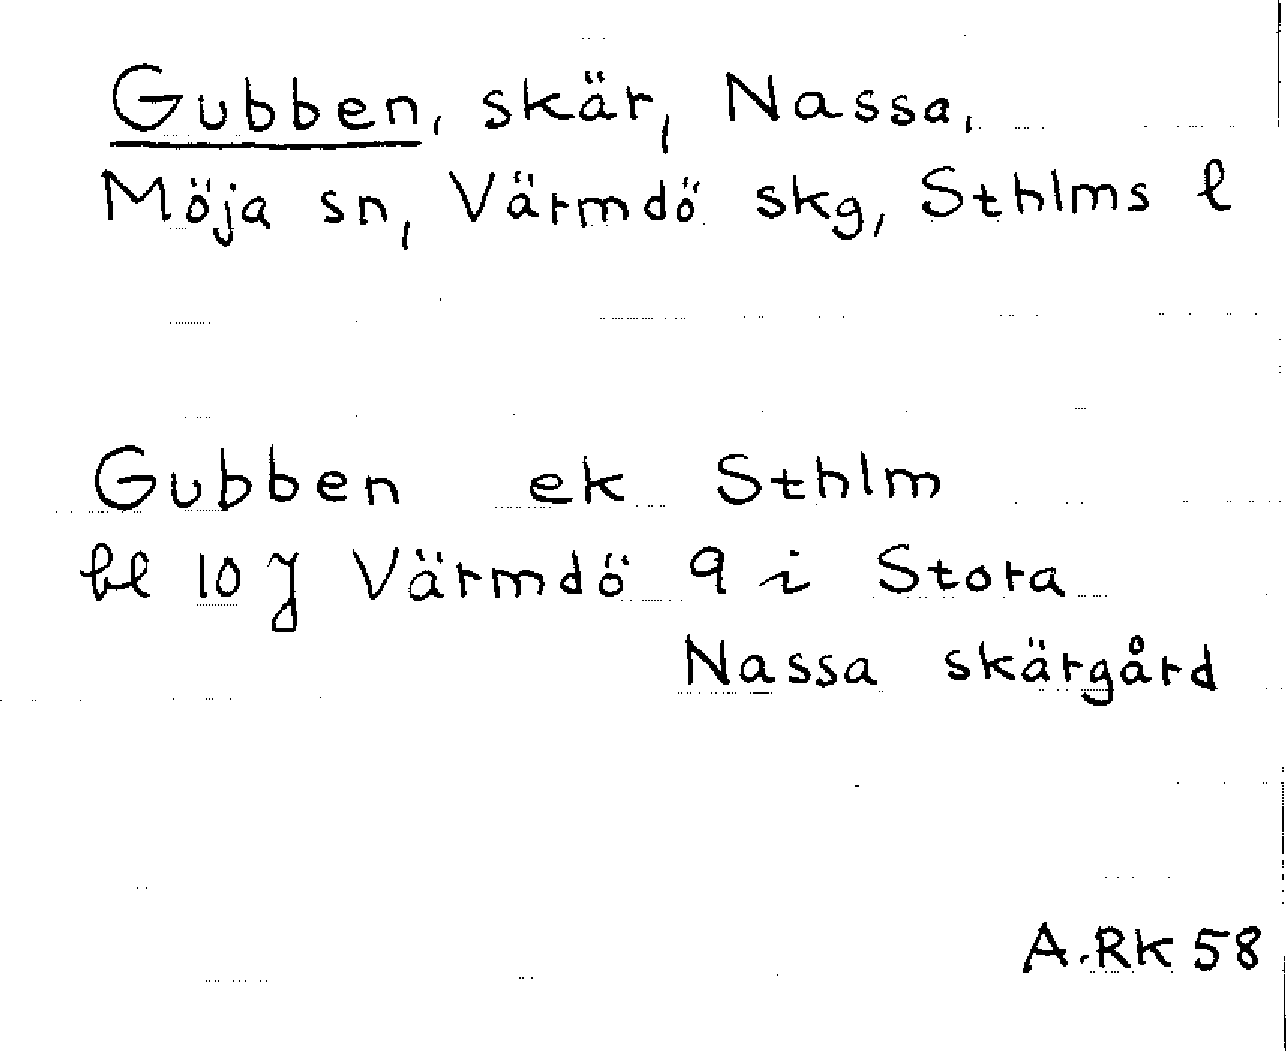 Gubben, skär, Nassa,
Möja sn, Värmdö skg, Sthlms l
Gubben ek Sthlm
bl 10 J Värmdö 9 i Stora
Nassa skärgård
A.RK 58